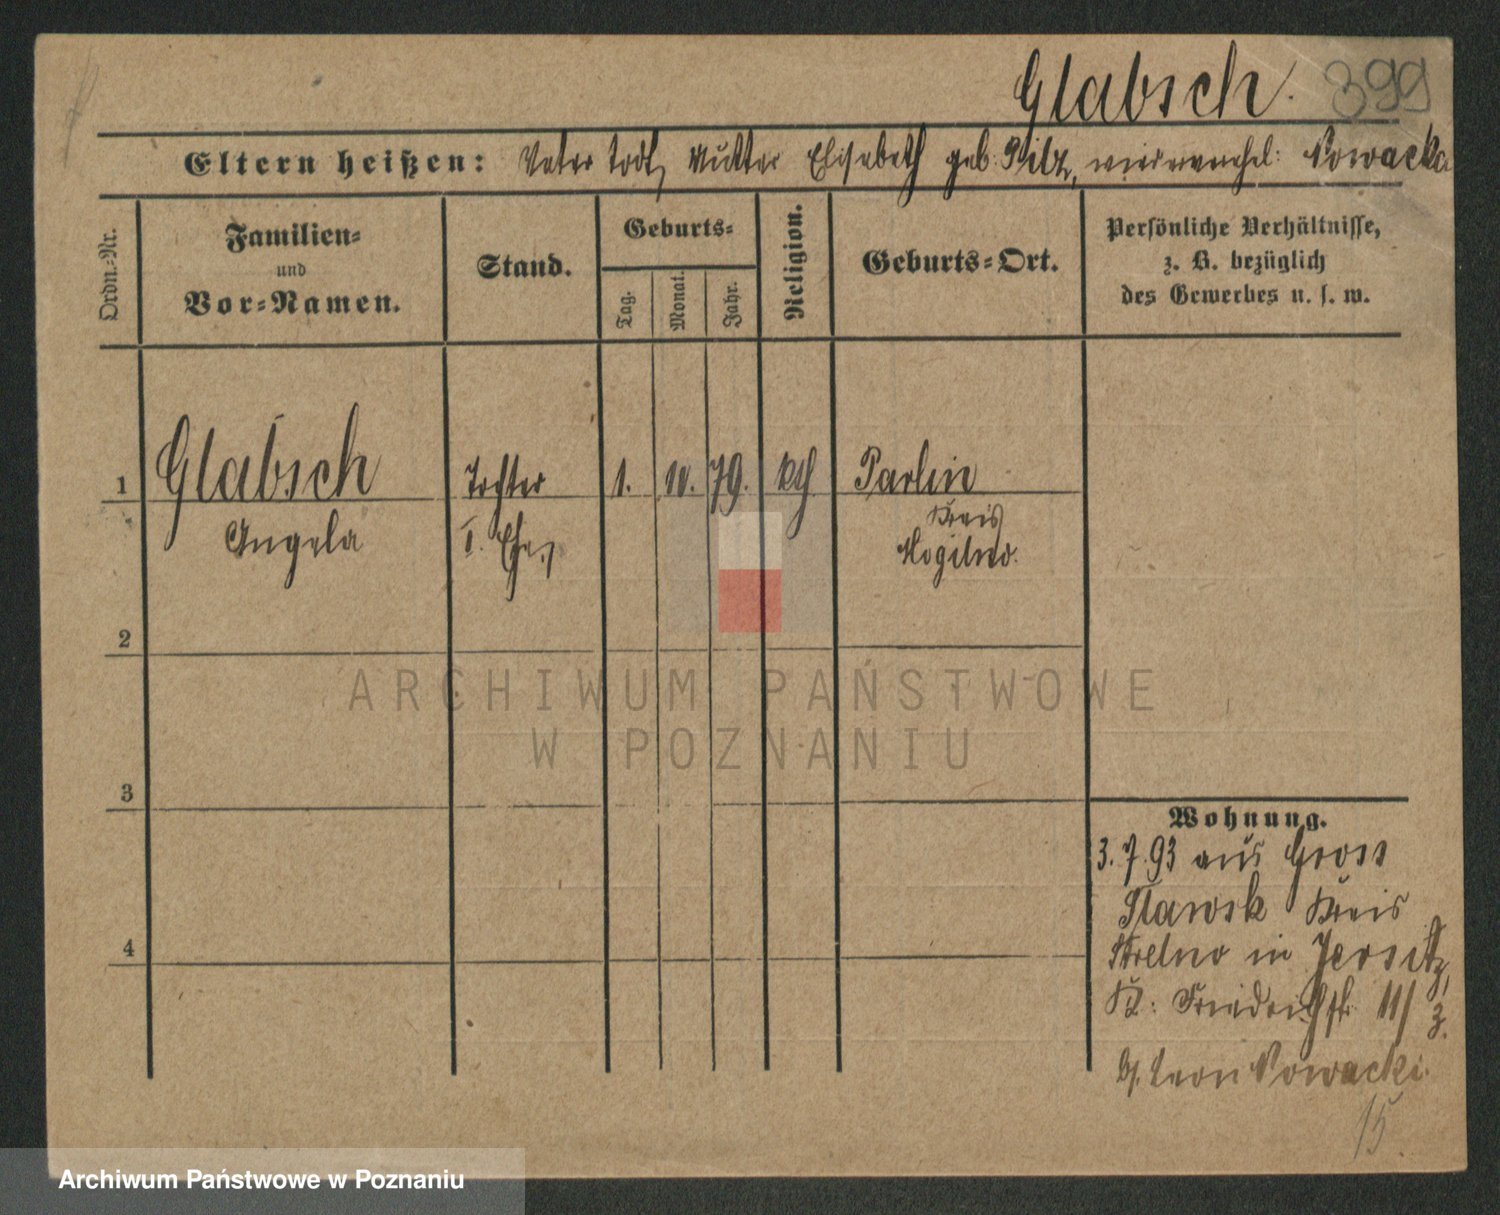 Glabsch. 399
Eltern heißen: Vater todt, Mutter Elisabeth geb: Pilz, wiederverehel: Nowacka
Ordn.-Nr.
Familien-
und
Vor-Namen.
Stand.
Geburts-
Tag.
Monat.
Jahr.
Religion.
Geburts-Ort.
Persönliche Verhältnisse,
z. B. bezüglich
des Gewerbes u. s. w.
1 Glabsch Tochter 1. 10. 79. kth Parlin
Angela I. Ehe, Kreis
Mogilno.
2
ARCHIWUM PAŃSTWOWE
W POZNANIU
3
Wohnung.
3.7.93 aus Gross
Slawsk Kreis
4 Strelno in Jersitz,
Kl: Friedrichstr 11/ z.
b/. Leon Nowacki.
15
Archiwum Państwowe w Poznaniu